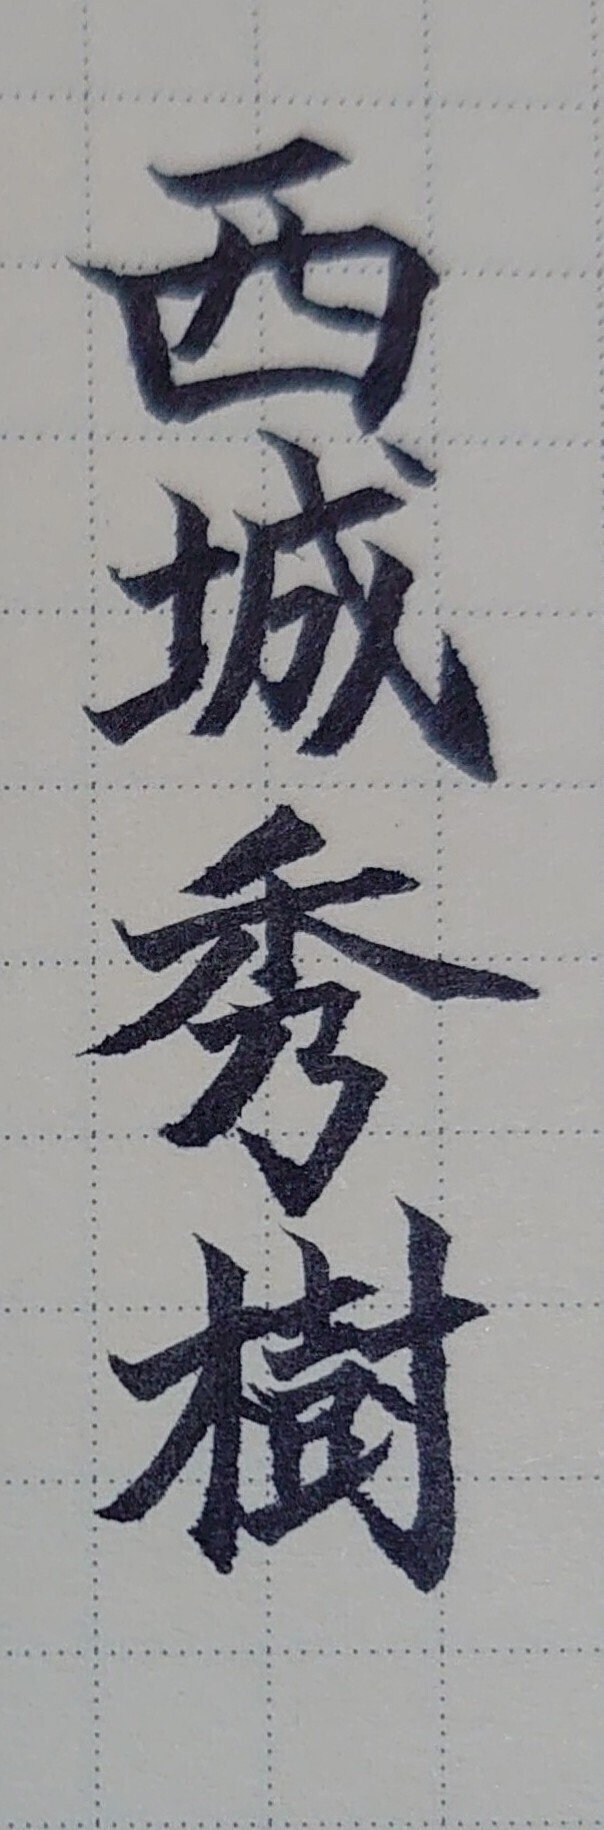 西城秀樹